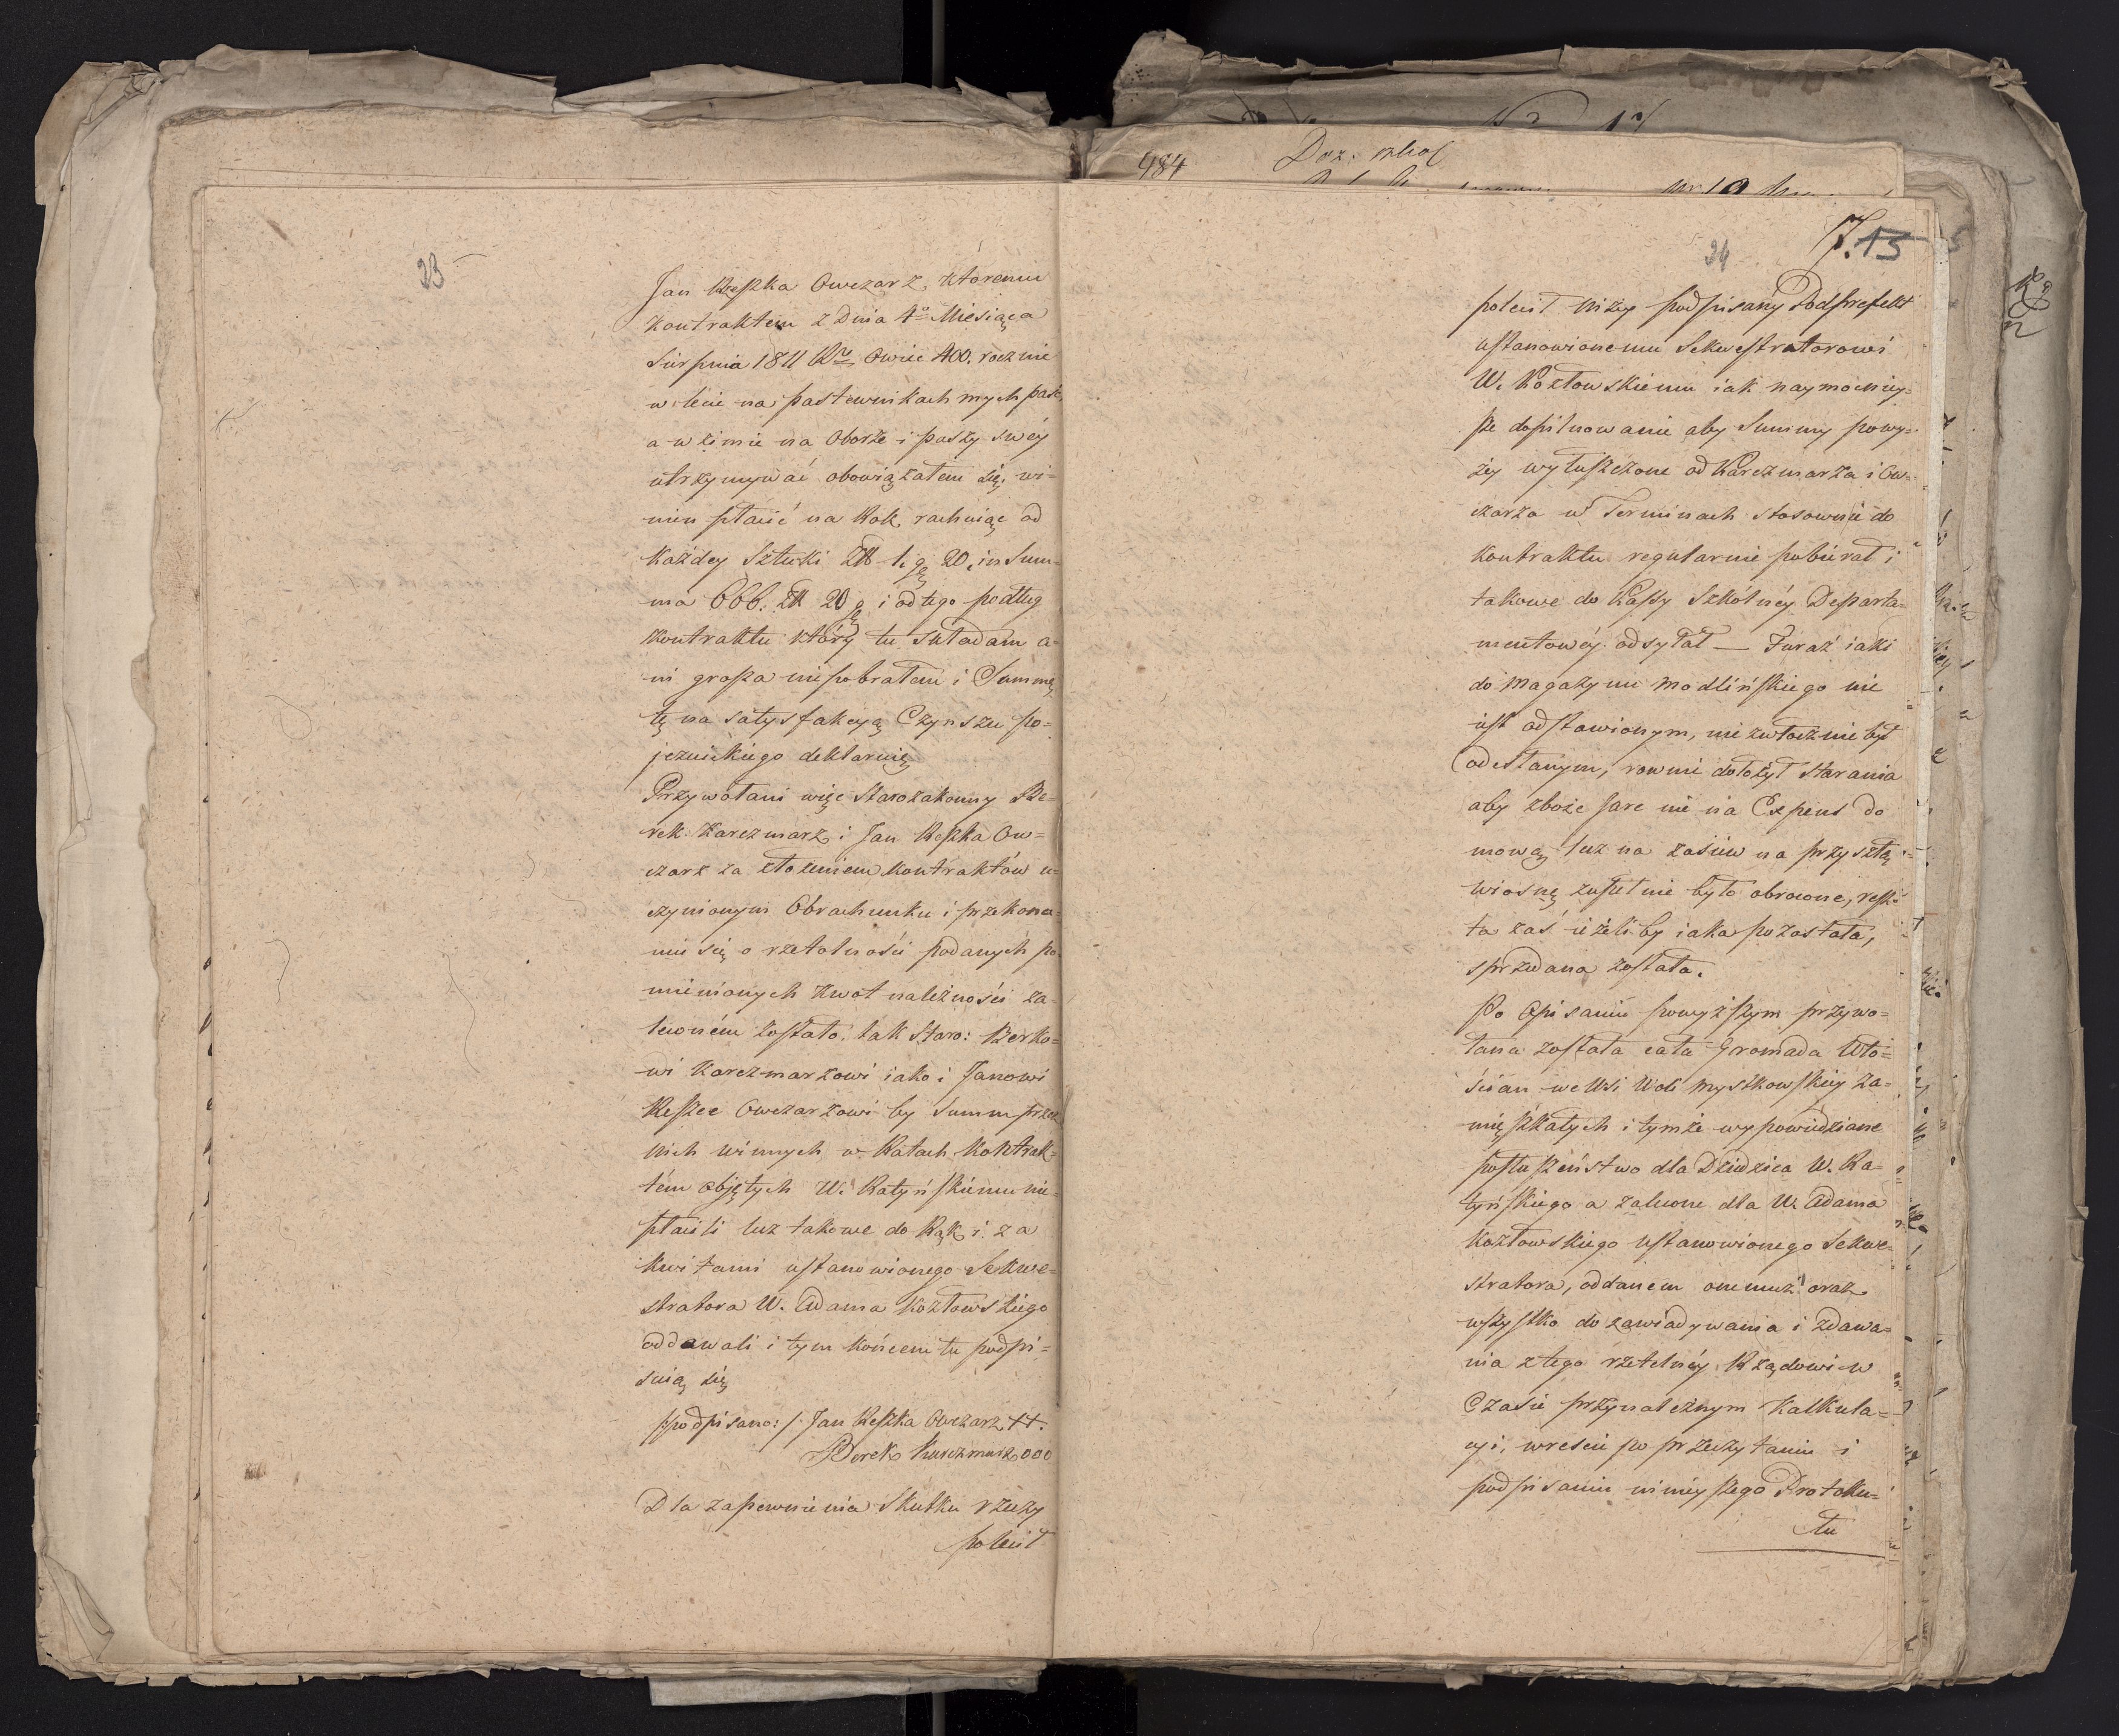 484 Doz. szkol
23
Jan Reszka Owczarz, ktoremu
Kontraktem z Dnia 4º Miesiąca
Sierpnia 1811 Rº Owiec 400. rocznie
w lecie na pastewnikach mych paść,
a w zimie na Oborze i paszy swéy
utrzymywać obowiązałem się, wi-
nien płacić na Rok, rachuiąc od
każdey Sztuki Zł 1. g 20, in Sum-
ma 666. Zł 20 g i od tego podług
kontraktu który tu składam a-
ni grosza niepobrałem i Summę
tę na satysfakcyą Czynszu po-
jezuickiego deklaruię
Przywołani więc Starozakonny Be-
rek Karczmarz i Jan Reszka Ow=
czarz za złożeniem kontraktów u-
czynionym Obrachunku i przekona-
niu się o rzetelności podanych po-
mienionych kwot należności za-
leconém zostało, tak Staro: Berko=
wi Karczmarzowi iako i Janowi
Reszce Owczarzowi by Summ przez
nich winnych w Ratach Kontrak-
tém objętych W. Ratyńskiemu nie
płacili lecz takowe do Rąk i za
kwitami ustanowionego Sekwe-
stratora W. Adama Kozłowskiego
oddawali i tym końcem tu podpi=
suią się
/podpisano:/ Jan Reszka Owczarz ++.
Berek Karczmarz 000
Dla zapewnienia Skutku rzeczy
polecił
24
7. 13
polecił niżey podpisany Podprefekt
ustanowionemu Sekwestratorowi
W. Kozłowskiemu iak naymocniey-
sze dopilnowanie aby Summy powy=
żey wyłuszczone od Karczmarza i Ow-
czarza w Terminach stosownie do
kontraktu regularnie pobierał i
takowe do Kassy Szkólnéy Departa=
mentowéy odsyłał — Furaż iaki
do Magazynu Modlińskiego nie
iest odstawionym, niezwłocznie był
odesłanym, rownie dołożył starania
aby zboże jare nie na Expens do
mową lecz na zasiew na przyszłą
wiosnę zupełnie było obrocone, resz-
ta zaś ieżeliby iaka pozostała,
sprzedana została.
Po Opisaniu powyższym przywo=
łana została cała Gromada Wło=
ścian we Wsi Woli Myszkowskiey za-
mięszkałych i tymże wypowiedziane
posłuszeństwo dla Dziedzica W. Ra=
tyńskiego a zalecone dla W. Adama
Kozłowskiego ustanowionego Sekwe-
stratora, oddanem onemuż oraz
wszystko do zawiadywania i zdawa=
nia z tego rzetelnéy Rządowi w
Czasie przynależnym Kalkula=
cyi, wreście po przeczytaniu i
podpisaniu ninieyszego Protoku=
łu